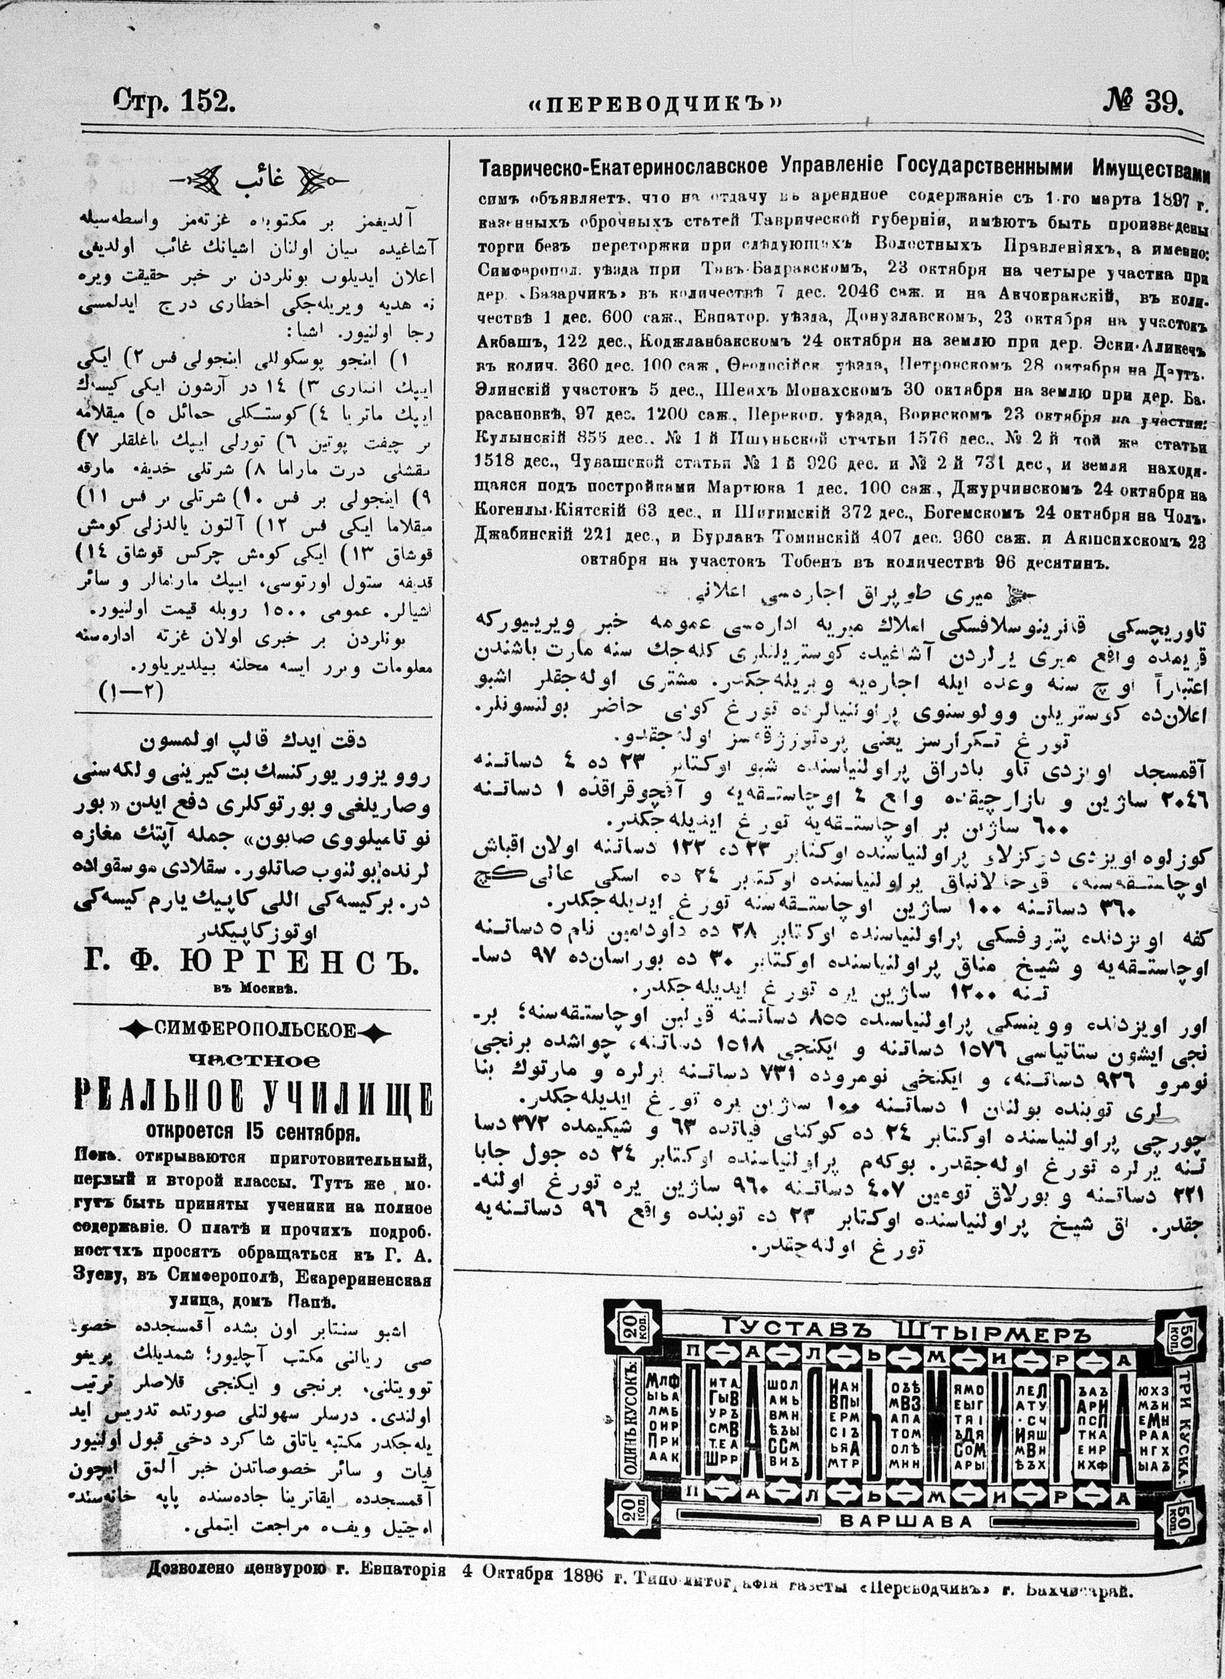 Стр. 152.
«ПЕРЕВОДЧИКЪ»
№ 39.
غائب
آلدیغمز بر مكتوبده غزته‌مز واسطه‌سیله
آشاغیده بیان اولنان اشیانك غائب اولدیغی
اعلان ایدیلوب بونلردن بر خبر حقیقت ویره
نه هدیه ویریله‌جكی اخطاری درج ایدلمسی
رجا اولنیور. اشیا:
۱) اینجو پوسكوللی اینجولی فس ۲) ایكی
ایپك انتاری ۳) ۱٤ در آرشون ایكی كیسه‌ك
٤) كوستكلی حمائل ۵) میقلامه
بر چیفت پوتین ۶) تورلی ایپك یاغلقلر ۷)
نقشلی درت ماراما ۸) شرتلی
۹) اینجولی بر فس ۱۰) شرتلی بر فس ۱۱)
میقلاما ایكی فس ۱۲) آلتون یالدزلی كومش
قوشاق ۱۳) ایكی كومش چركس قوشاق ۱٤)
قدیفه ستول اورتوسی، ایپك مارامالر و سائر
اشیالر. عمومی ۱۵۰۰ روبله قیمت اولنیور.
بونلردن بر خبری اولان غزته اداره‌سنه
معلومات ویرر ایسه محلنه بیلدیریلور.
(۲—۱)
دقت ایدك قالپ اولمسون
روویزور یوركنسك بت كیرینی ولكه‌سنی
وصاریلغی و بورتوكلری دفع ایدن «بور
نو تامیلووی صابون» جمله آپتك مغازه
لرنده بولنوب صاتلور. سقلادی موسقواده
در. بركیسه‌كی اللی كاپیك یارم كیسه‌كی
اوتوزكاپیكدر
Г. Ф. ЮРГЕНСЪ.
въ Москвѣ.
СИМФЕРОПОЛЬСКОЕ
частное
РЕАЛЬНОЕ УЧИЛИЩЕ
откроется 15 сентября.
Пока открываются приготовительный,
первый и второй классы. Тутъ же мо-
гутъ быть приняты ученики на полное
содержаніе. О платѣ и прочихъ подроб-
ностяхъ просятъ обращаться къ Г. А.
Зуеву, въ Симферополѣ, Екарериненская
улица, домъ Папѣ.
اشبو سنتابر اون بشده آقمسجدده خصو-
صی ریالنی مكتب آچلیور؛ شمدیلك پریغو
توویتلنی. برنجی و ایكنجی قلاصلر ترتیب
اولندی. درسلر سهولتلی صورتده تدریس اید
یله‌جكدر مكتبه یاتاق شاكرد دخی قبول اولنیور
فیات و سائر خصوصاتدن خبر آلمق ایچون
آقمسجدده ایقاترینا جاده‌سنده پاپه خانه‌سنده
مراجعت ایتملی.
Таврическо-Екатеринославское Управленіе Государственными Имуществами
симъ объявляетъ, что на отдачу въ арендное содержаніе съ 1-го марта 1897 г.
казенныхъ оброчныхъ статей Таврической губерніи, имѣютъ быть произведены
торги безъ переторжки при слѣдующихъ Волостныхъ Правленіяхъ, а именно:
Симферопол. уѣзда при Тав-Бадракскомъ, 23 октября на четыре участка при
дер. «Базарчикъ» въ количествѣ 7 дес. 2046 саж. и на Акчокракскій, въ коли-
чествѣ 1 дес. 600 саж., Евпатор. уѣзда, Донузлавскомъ, 23 октября на участокъ
Акбашъ, 122 дес., Коджланбакскомъ 24 октября на землю при дер. Эски-Аликечъ
въ колич. 360 дес. 100 саж., Ѳеодосійск. уѣзда, Петровскомъ 28 октября на Даутъ-
Элинскій участокъ 5 дес., Шеихъ Монахскомъ 30 октября на землю при дер. Ба-
расановкѣ, 97 дес. 1200 саж., Перекоп. уѣзда, Воинскомъ 23 октября на участки:
Кулынскій 855 дес., № 1 й Ишуньской статьи 1576 дес., № 2 й той же статьи
1518 дес., Чувашской статьи № 1 й 926 дес. и № 2 й 731 дес., и земля находя-
щаяся подъ постройками Мартюка 1 дес. 100 саж., Джурчинскомъ 24 октября на
Когенлы-Кіятскій 63 дес., и Шигимскій 372 дес., Богемскомъ 24 октября на Чолъ-
Джабинскій 221 дес., и Бурлакъ Томинскій 407 дес. 960 саж. и Акшсихскомъ 23
октября на участокъ Тобенъ въ количествѣ 96 десятинъ.
میری طوپراق اجاره‌سی اعلانی
تاوریچسكی قاتیرینوسلافسكی املاك میریه اداره‌سی عمومه خبر ویرییوركه
قریمده واقع میری یرلردن آشاغیده كوستریلنلری كله‌جك سنه مارت باشندن
اعتباراً اوچ سنه وعده ایله اجاره‌یه ویریله‌جكدر. مشتری اوله‌جقلر اشبو
اعلان‌ده كوستریلن وولوسنوی پراولنیالرده تورغ كونی حاضر بولنسونلر.
تورغ تكرارسز یعنی پره‌تورژقه‌سز اوله‌جقدر.
آقمسجد اویزدی تاو بادراق پراولنیاسنده شبو اوكتابر ۲۳ ده ٤ دساتنه
۲۰٤۶ ساژین و بازارچیقده واقع ٤ اوچاستقه‌یه و آقچوقراقده ۱ دساتنه
۶۰۰ ساژین بر اوچاستقه‌یه تورغ ایدیله‌جكدر.
كوزلوه اویزدی دوكزلاو پراولنیاسنده اوكتابر ۲۳ ده ۱۲۲ دساتنه اولان اقباش
اوچاستقه‌سنه، قوجالانباق پراولنیاسنده اوكتابر ۲٤ ده اسكی عالی‌كچ
۳۶۰ دساتنه ۱۰۰ ساژین اوچاستقه‌سنه تورغ ایدیله‌جكدر.
كفه اویزدنده پتروفسكی پراولنیاسنده اوكتابر ۲۸ ده نام ۵ دساتنه
اوچاستقه‌یه و شیخ مناق پراولنیاسنده اوكتابر ۳۰ ده بوراسان‌ده ۹۷ دسا-
تنه ۱۲۰۰ ساژین یره تورغ ایدیله‌جكدر.
اور اویزدنده ووینسكی پراولنیاسنده ۸۵۵ دساتنه قولین اوچاستقه‌سنه؛ بر-
نجی ایشون ستاتیاسی ۱۵۷۶ دساتنه و ایكنجی ۱۵۱۸ دساتنه، چواشده برنجی
نومرو ۹۲۶ دساتنه، و ایكنجی نومروده ۷۳۱ دساتنه یرلره و مارتوك بنا
لری توبنده بولنان ۱ دساتنه ۱۰۰ ساژین یره تورغ ایدیله‌جكدر.
چورچی پراولنیاسنده اوكتابر ۲٤ ده كوكنلی قیاتده ۶۳ و شیكیمده ۳۷۲ دسا
تنه یرلره تورغ اوله‌جقدر. بوكه‌م پراولنیاسنده اوكتابر ۲٤ ده جول جابا
۲۲۱ دساتنه و بورلاق تومین ٤۰۷ دساتنه ۹۶۰ ساژین یره تورغ اولنه-
جقدر. اق شیخ پراولنیاسنده اوكتابر ۲۳ ده توبنده واقع ۹۶ دساتنه‌یه
تورغ اوله‌جقدر.
20 коп.
ГУСТАВЪ ШТЫРМЕРЪ
50 коп.
П—А—Л—Ь—М—И—Р—А
ОДИНЪ КУСОКЪ
ПАЛЬМИРА
ТРИ КУСКА
П—А—Л—Ь—М—И—Р—А
20 коп.
ВАРШАВА
50 коп.
Дозволено цензурою г. Евпаторія 4 Октября 1896 г. Типо-литографія газеты «Переводчикъ» г. Бахчисарай.